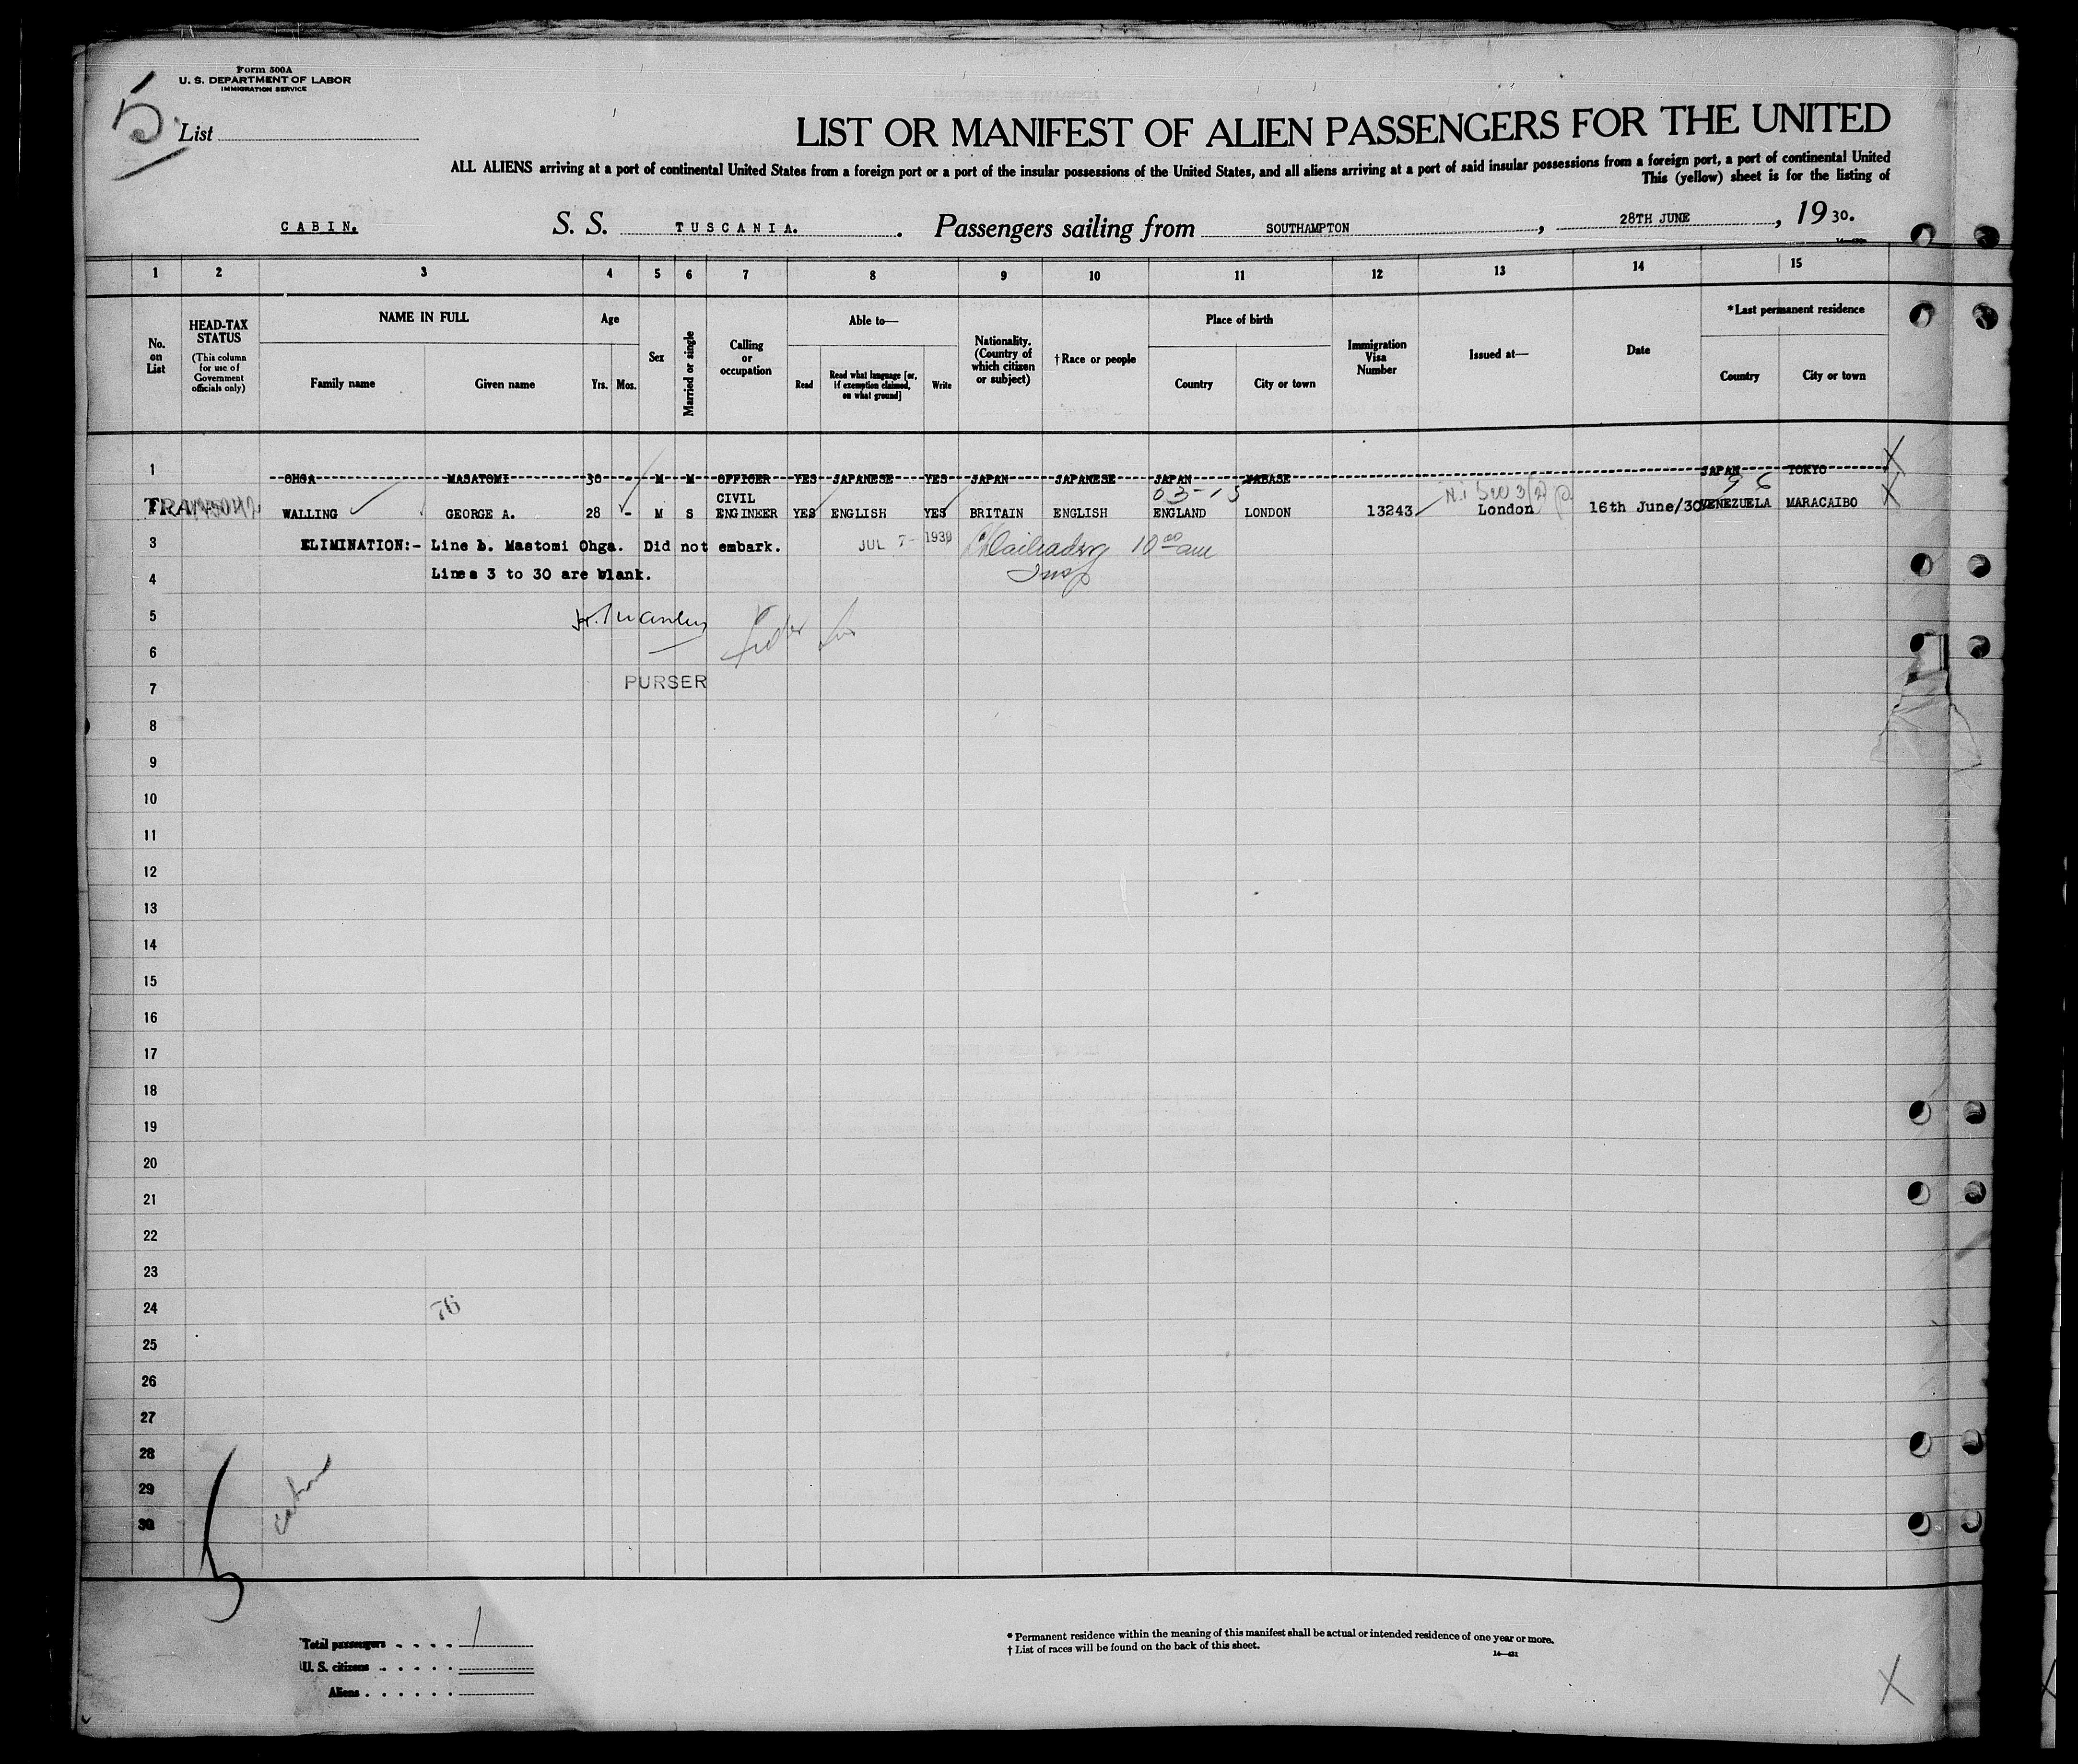 Form 500A
U. S. DEPARTMENT OF LABOR
IMMIGRATION SERVICE
5
List
LIST OR MANIFEST OF ALIEN PASSENGERS FOR THE UNITED
ALL ALIENS arriving at a port of continental United States from a foreign port or a port of the insular possessions of the United States, and all aliens arriving at a port of said insular possessions from a foreign port, a port of continental United
This (yellow) sheet is for the listing of
CABIN. S. S. TUSCANIA. Passengers sailing from SOUTHAMPTON, 28TH JUNE, 1930.
1 2 3 4 5 6 7 8 9 10 11 12 13 14 15
No. on List
HEAD-TAX STATUS (This column for use of Government officials only)
NAME IN FULL
Family name Given name
Age
Yrs. Mos.
Sex
Married or single
Calling or occupation
Able to—
Read Read what language [or, if exemption claimed, on what ground] Write
Nationality. (Country of which citizen or subject)
†Race or people
Place of birth
Country City or town
Immigration Visa Number
Issued at—
Date
*Last permanent residence
Country City or town
1 OHGA MASATOMI 30 - M M OFFICER YES JAPANESE YES JAPAN JAPANESE JAPAN JAPAN TOKYO
WALLING GEORGE A. 28 - M S CIVIL ENGINEER YES ENGLISH YES BRITAIN ENGLISH ENGLAND LONDON 13243 London 16th June/30 VENEZUELA MARACAIBO
3 ELIMINATION:- Line 1. Mastomi Ohga. Did not embark. JUL 7- 1930 10 00 am
Insp
4 Lines 3 to 30 are blank.
5
6
7 PURSER
8
9
10
11
12
13
14
15
16
17
18
19
20
21
22
23
24 76
25
26
27
28
29
30
5
Total passengers 1
U. S. citizens
Aliens
* Permanent residence within the meaning of this manifest shall be actual or intended residence of one year or more.
† List of races will be found on the back of this sheet.